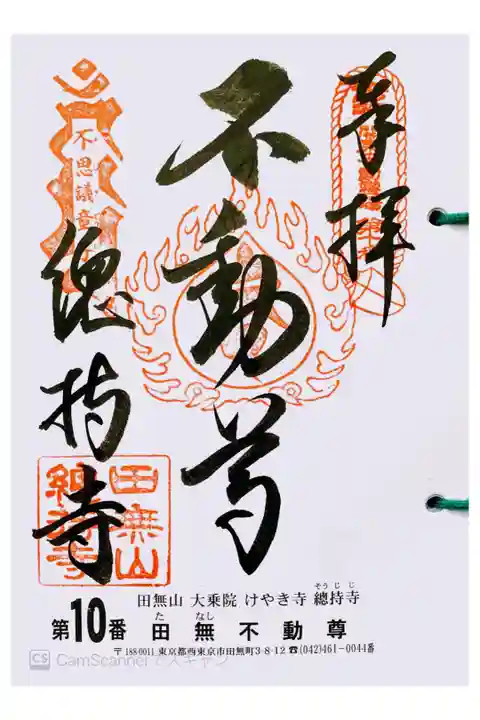 奉拝
不動尊
總持寺
不思議童
田無山
總持寺
そうじじ
田無山 大乗院 けやき寺 總持寺
た なし
第10番 田無不動尊
〒188-0011 東京都西東京市田無町3-8-12 ☎(042)461-0044番
CS CamScanner でスキャン